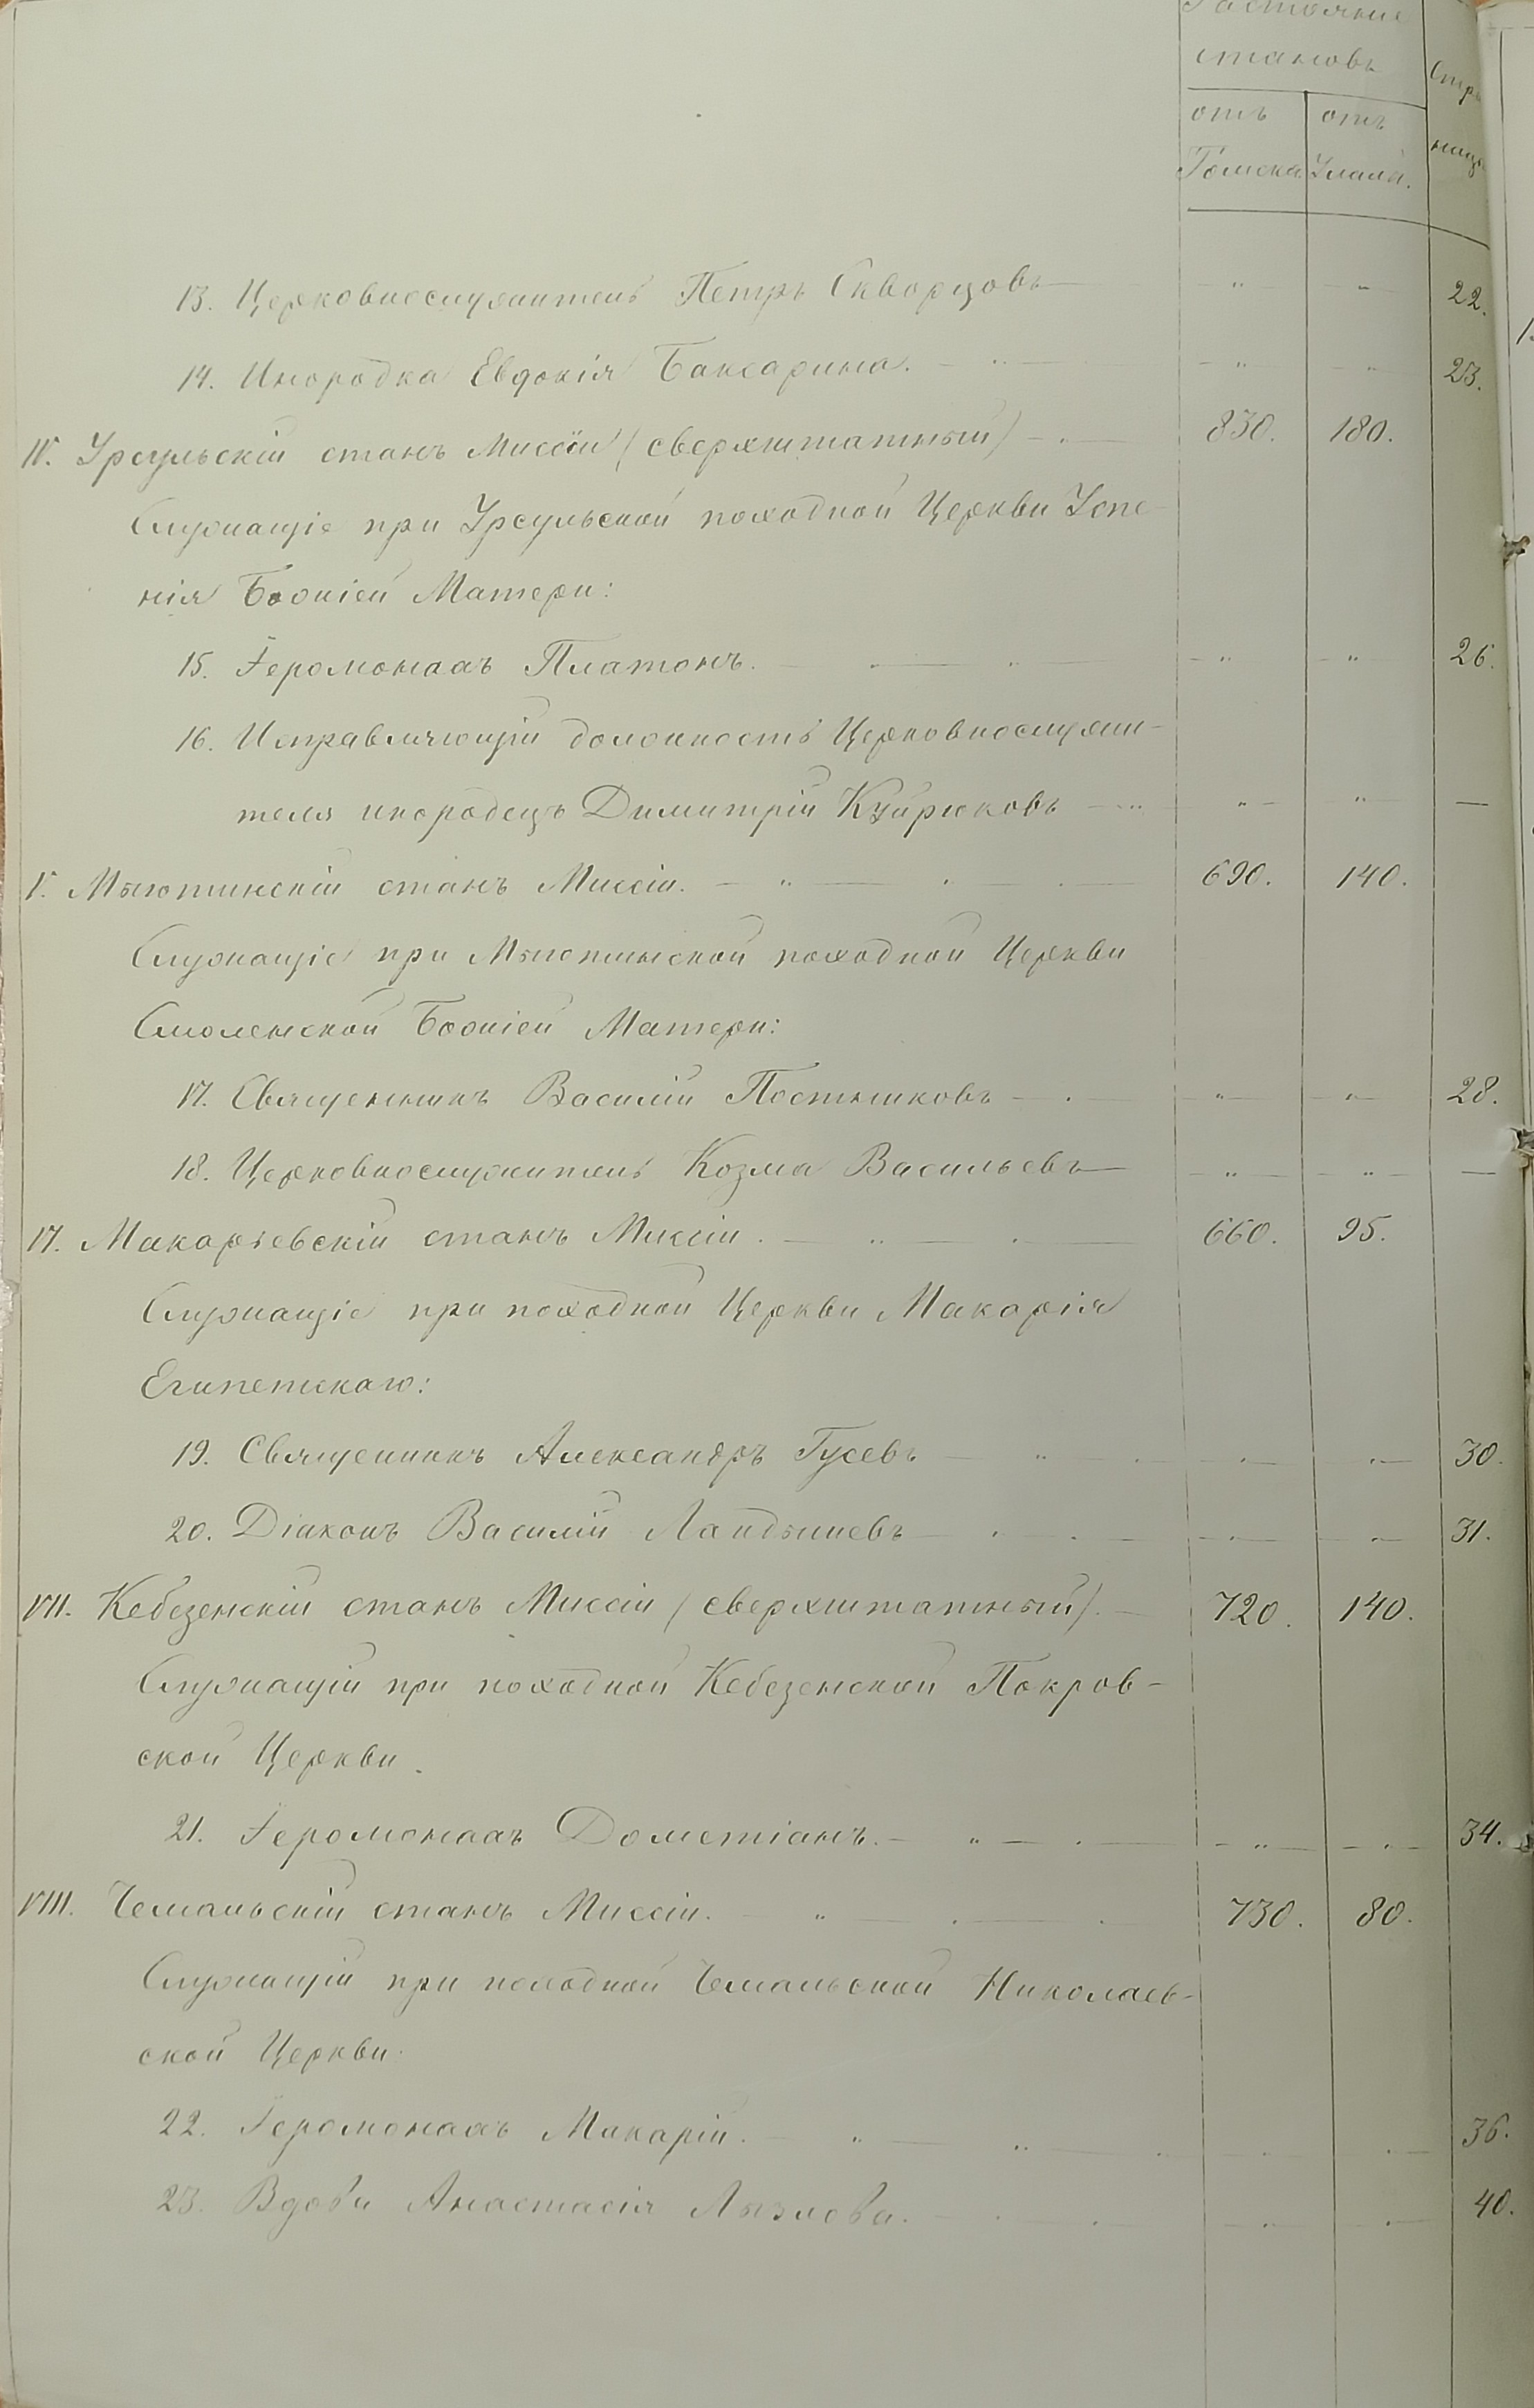 Растояніе
становъ
отъ
Томска
отъ
Улалы.
Стра
ницы
13. Церковнослужитель Петръ Скворцовъ — „ — „ — 22.
14. Инородка Евдокія Баксарина. — „ — „ — „ — 23.
IV. Урсульскій станъ Миссіи (сверхштатный) — 830. 180.
Служащіе при Урсульской походной Церкви Успе-
нія Божіей Матери:
15. Іеромонахъ Платонъ. — „ — „ — 26.
16. Исправляющій должность Церковнослужи-
теля инородецъ Димитрій Куйрюковъ — „ — „ — „ —
V. Мыютинскій станъ Миссіи. — „ — 690. 140.
Служащіе при Мыютинской походной Церкви
Смоленской Божіей Матери:
17. Священникъ Василій Постниковъ — „ — „ — 28.
18. Церковнослужитель Козма Васильевъ — „ — „ —
VI. Макарьевскій станъ Миссіи. — „ — 660. 95.
Служащіе при походной Церкви Макарія
Египетскаго:
19. Священникъ Александръ Гусевъ — „ — 30.
20. Діаконъ Василій Ландышевъ — 31.
VII. Кебезенскій станъ Миссіи (сверхштатный). — 720. 140.
Служащій при походной Кебезенской Покров-
ской Церкви.
21. Іеромонахъ Дометіанъ. — „ — „ — 34.
VIII. Чемальскій станъ Миссіи. — „ — 730. 80.
Служащій при походной Чемальской Николаев-
ской Церкви.
22. Іеромонахъ Макарій. — „ — „ — 36.
23. Вдова Анастасія — 40.